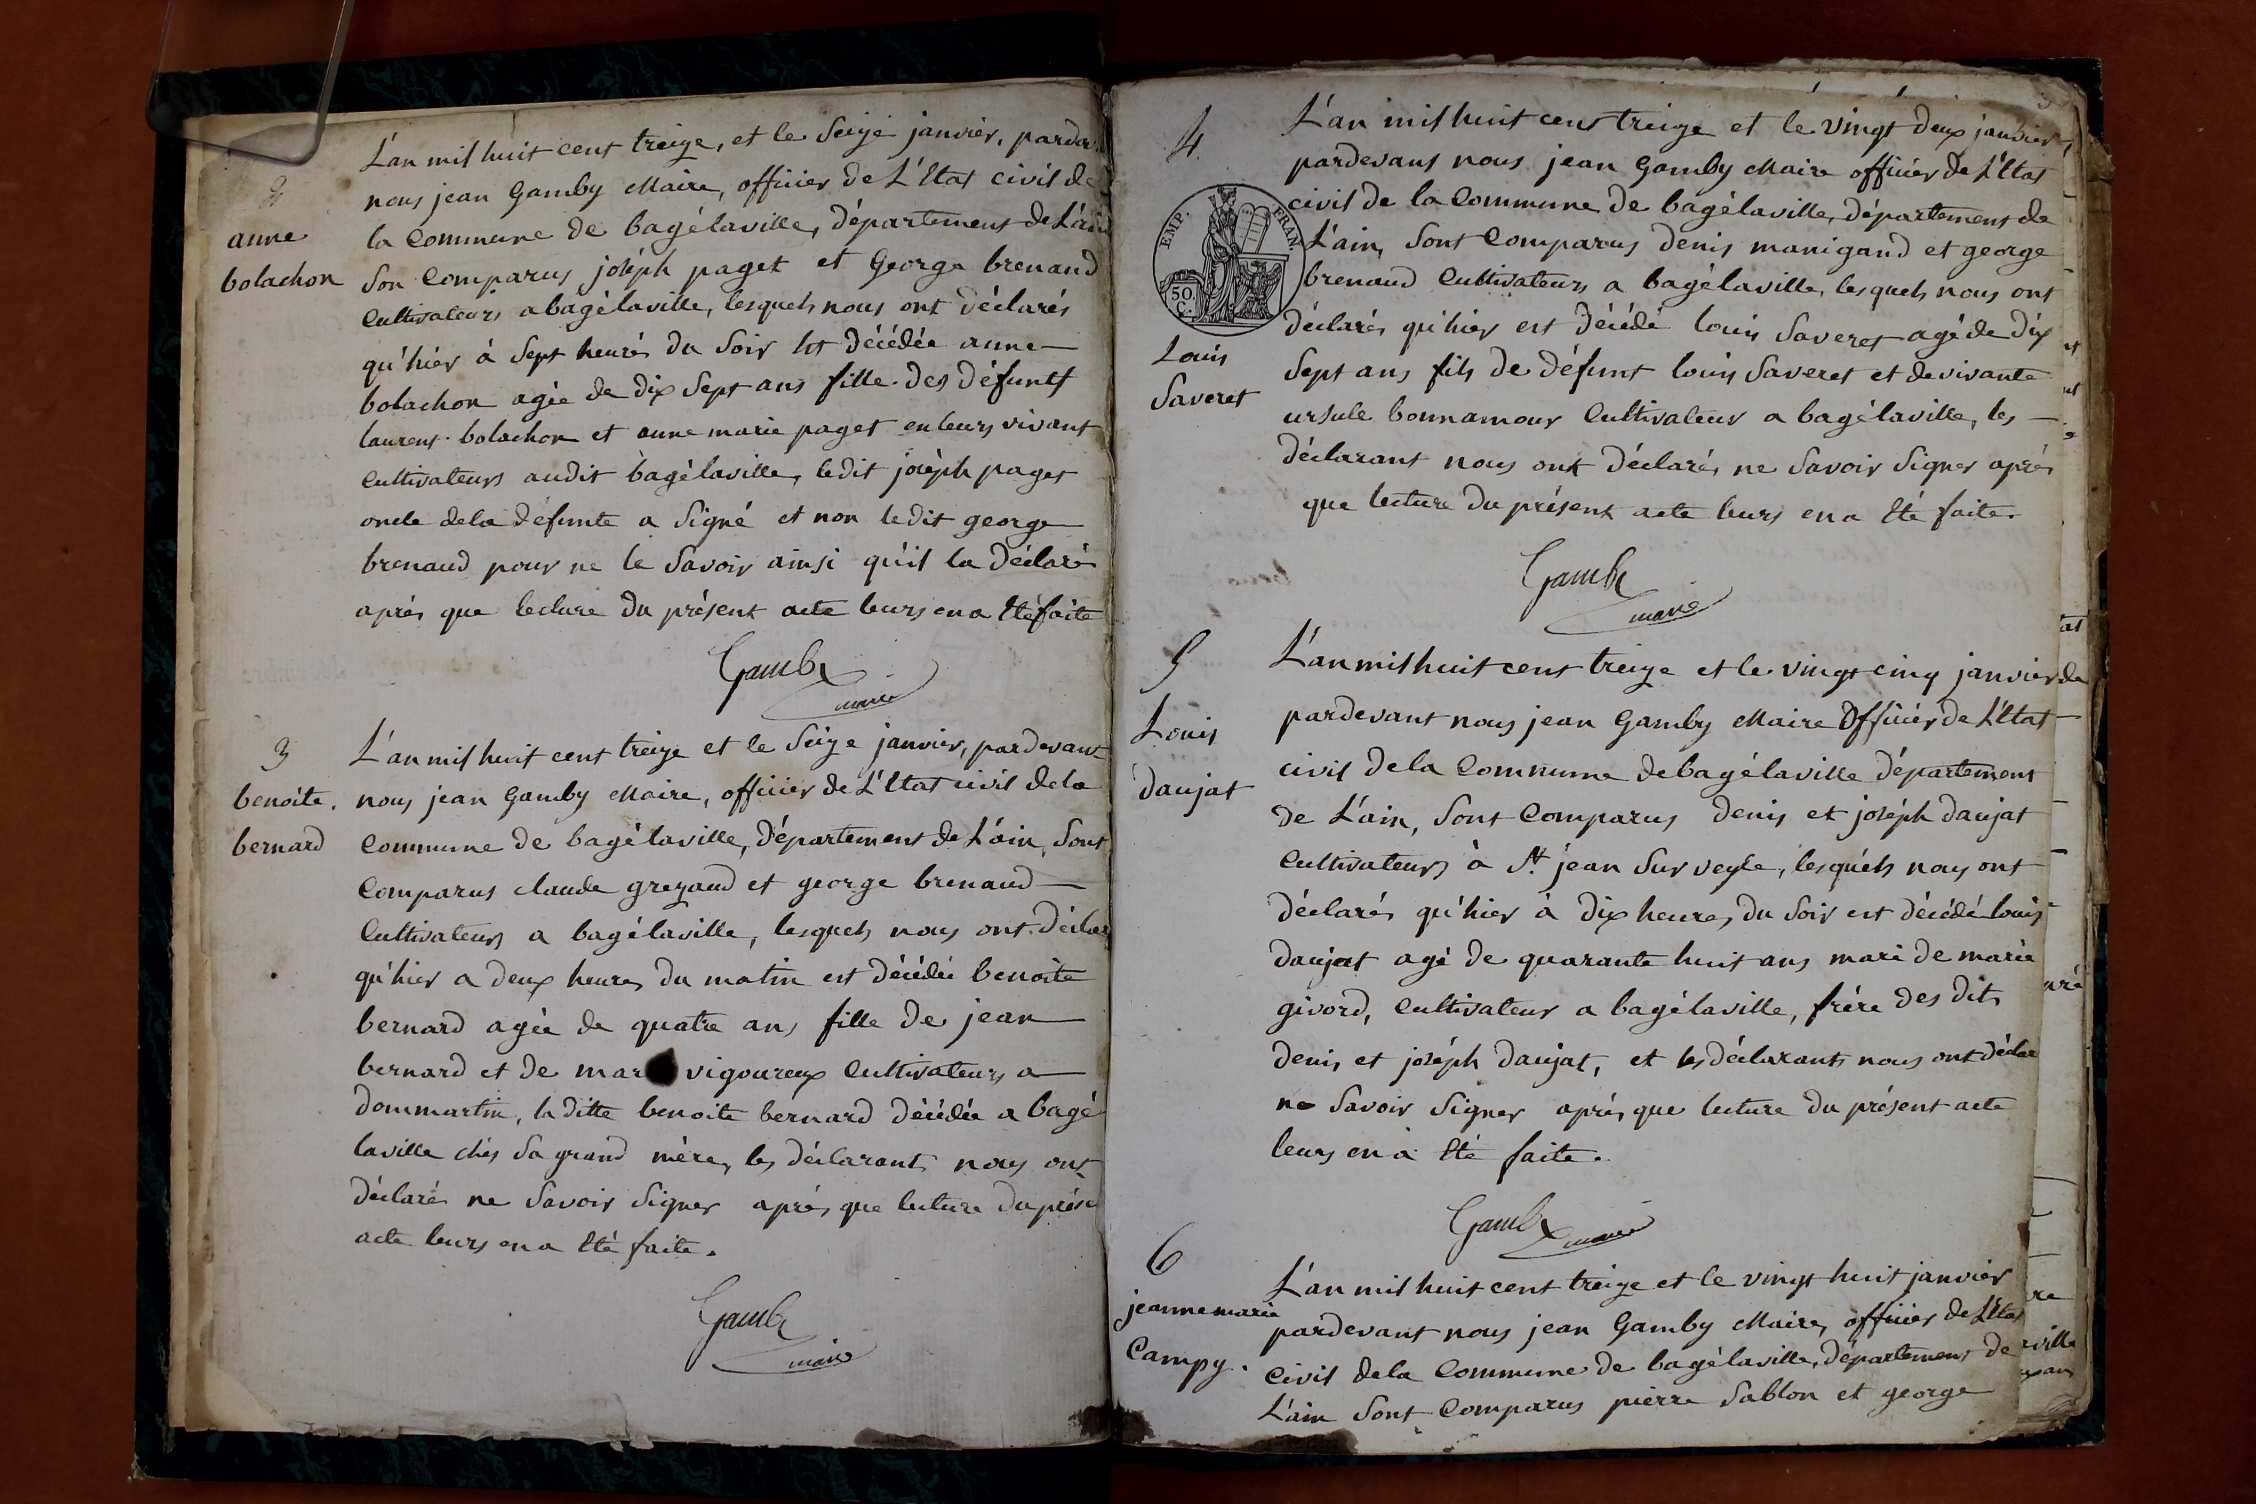 2
anne
bolachon
L'an mil huit cent treize, et le Seize janvier, pardev
nous jean Gamby Maire, officier de L'Etat civil de
la Commune de bagélaville, département de L'ain
Son Comparus joséph paget et George brenaud
Cultivateurs a bagélaville, lesquels nous ont déclarés
qu'hier à Sept heures du Soir Est décédée anne
bolachon agée de dix Sept ans fille des défunts
laurent bolachon et anne marie paget en leurs vivant
Cultivateurs audit bagélaville, ledit joséph paget
oncle dela défunte a Signé et non ledit george
brenaud pour ne le Savoir ainsi qu'il la déclaré
aprés que lecture du présent acte leurs en a Eté faite
Gamby
maire
3
benoite
bernard
L'an mil huit cent treize et le Seize janvier, pardevant
nous jean Gamby Maire, officier de L'Etat civil dela
Commune de bagélaville, département de L'ain, Sont
Comparus claude grezaud et george brenaud
Cultivateurs a bagélaville, lesquels nous ont déclar
qu'hier a deux heures du matin est décédée benoite
bernard agée de quatre ans fille de jean
bernard et de mar vigoureux Cultivateurs a
dommartin, la ditte benoite bernard décédée a bagé
laville chés Sa grand mère, les déclarants nous ont
déclarés ne Savoir Signer aprés que lecture du prése
acte leurs en a Eté faite.
Gamby
maire
4
EMP. FRAN.
50.
C.
Louis
Saveret
L'an mil huit cens treize et le vingt deux janvier,
pardevant nous jean Gamby Maire officier de L'Etat
civil de la Commune de bagélaville, département de
L'ain, Sont Comparus denis manigand et george
brenaud Cultivateurs a bagélaville, lesquels nous ont
déclarés qu'hier est décédé louis Saveret agé de dix
Sept ans fils de défunt louis Saveret et de vivante
ursule bonnamour Cultivateur a bagélaville, les
déclarant nous ont déclarés ne Savoir Signer aprés
que lecture du présent acte leurs en a Eté faite.
Gamby
maire
5
Louis
daujat
L'an mil huit cent treize et le vingt cinq janvier
pardevant nous jean Gamby Maire Officier de L'Etat
civil dela Commune de bagélaville département
de L'ain, Sont Comparus denis et joséph daujat
Cultivateurs à St. jean Sur veyle, lesquels nous ont
déclarés qu'hier à dix heures du Soir est décédé louis
daujat agé de quarante huit ans mari de marie
givord, Cultivateur a bagélaville, frére des dits
denis et joséph daujat, et les déclarants nous ont déclar
ne Savoir Signer aprés que lecture du présent acte
leurs en a Eté faite.
Gamby
maire
6
jeanne marie
Campy.
L'an mil huit cent treize et le vingt huit janvier
pardevant nous jean Gamby Maire, officier de L'Etat
Civil dela Commune de bagélaville, département de
L'ain Sont Comparus pierre Sablon et george